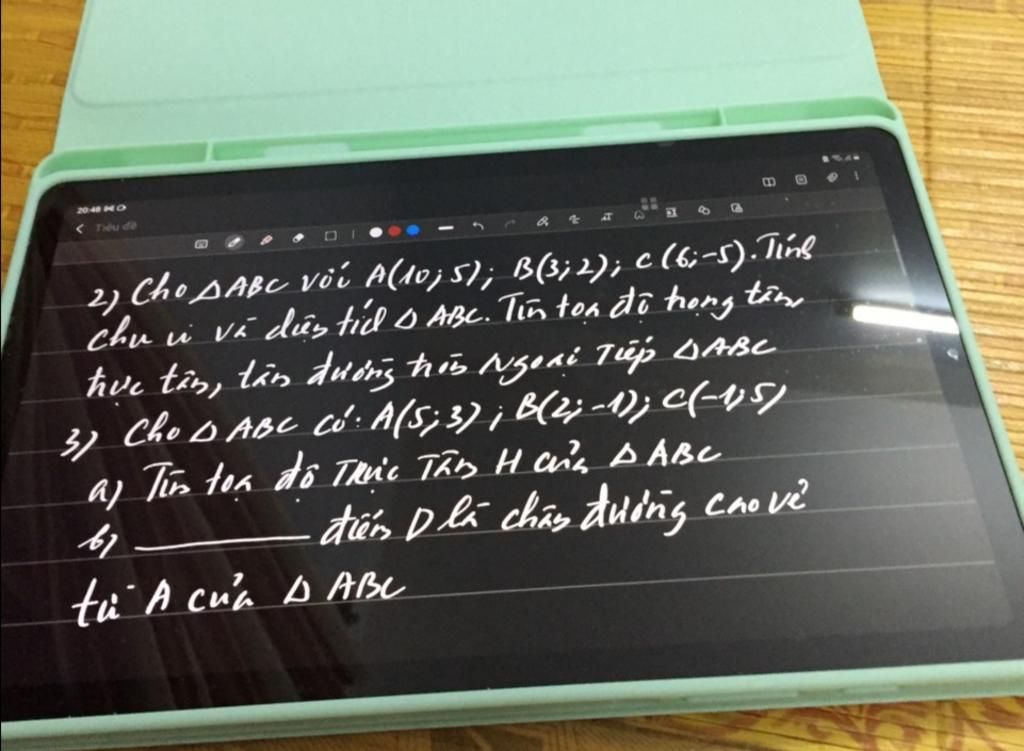 20:48
Tiêu đề
2) Cho △ABC với A(10;5); B(3;2); C(6;-5). Tính
chu vi và diện tích △ABC. Tìm toạ độ trọng tâm,
trực tâm, tâm đường tròn Ngoại Tiếp △ABC
3) Cho △ABC có: A(5;3); B(2;-1); C(-1;5)
a) Tìm toạ độ Trực Tâm H của △ABC
b) ________ điểm D là chân đường cao vẽ
từ A của △ABC